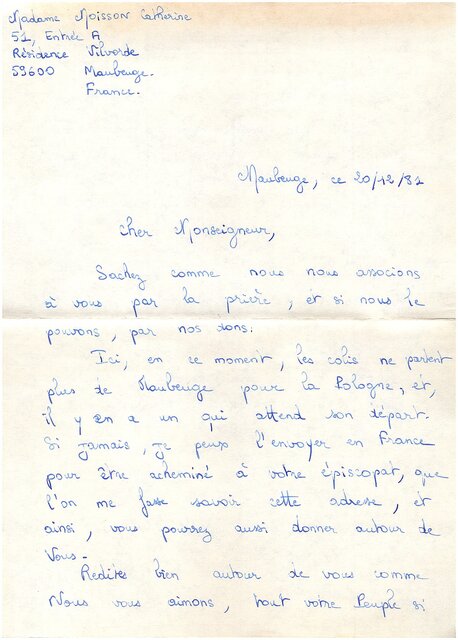 Madame MOISSON Catherine
51, Entrée A
Résidence Vilvorde
59600 Maubeuge.
France.
Maubeuge, ce 20/12/81
Cher Monseigneur,
Sachez comme nous nous associons
à vous par la prière, et si nous le
pouvons, par nos dons.
Ici, en ce moment, les colis ne partent
plus de Maubeuge pour la Pologne, et,
il y en a un qui attend son départ.
Si jamais, je peux l'envoyer en France
pour être acheminé à votre épiscopat, que
l'on me fasse savoir cette adresse, et
ainsi, vous pourrez aussi donner autour de
Vous.
Redites bien autour de vous comme
Nous vous aimons, tout votre Peuple si